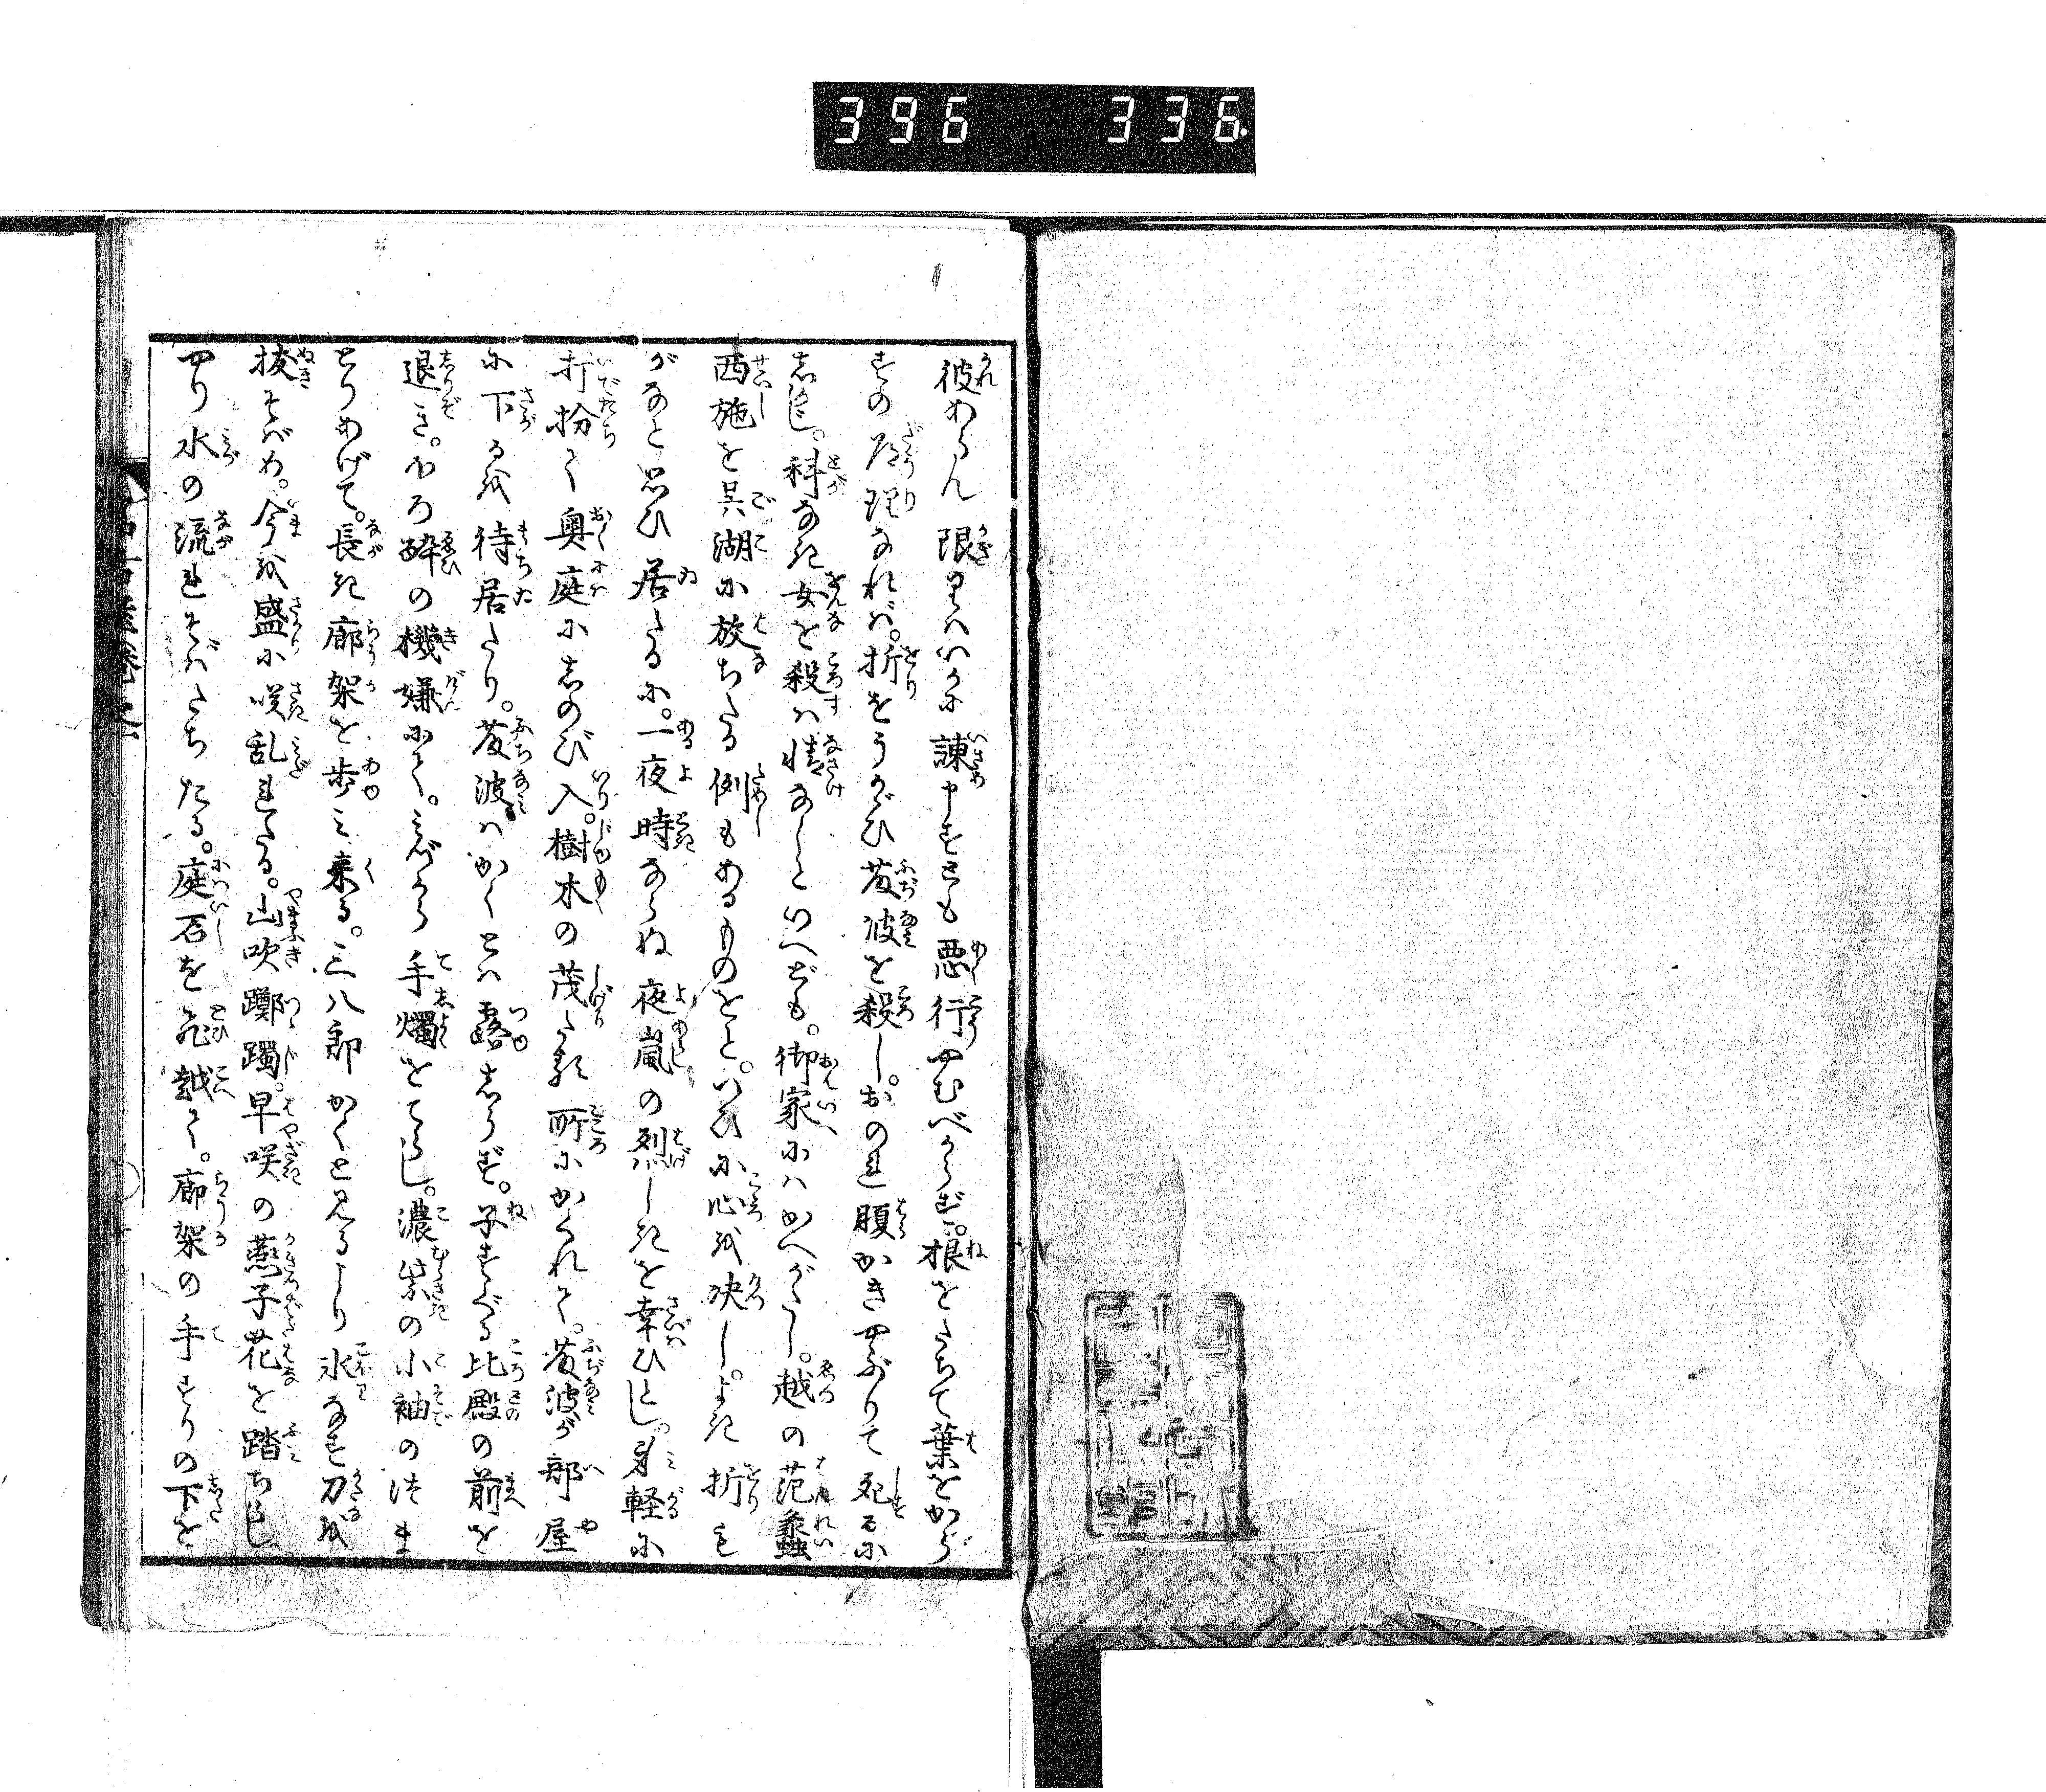 396 336
彼あらん限りハいかに諫申すとも悪行やむべからず。根をたちて葉をからす
の道理なれバ。折をうかゞひ藤波を殺し。おのれ腹かきやぶりて死るに
しかじ。科なき女を殺ハ情なしといへども。御家にハかへがたし。越の范蠡
西施を呉湖に放ちたる例もあるものをと。つひに心を決し。よき折も
がなと思ひ居たるに。一夜時ならぬ夜嵐の烈しきを幸ひとし。身軽に
打扮て奥庭にしのび入。樹木の茂たる所にかくれて。藤波が部屋
に下るを待居たり。藤波ハかくとハ露しらず。子すぐる比殿の前を
退き。ほろ酔の機嫌にて。みづから手燭をてらし。濃紫の小袖のつま
とりあげて。長き廊架を歩み来る。三八郎かくと見るより氷なす刀を
抜そばめ。今を盛に咲乱れたる。山吹躑躅早咲の燕子花を踏ちらし
やり水の流れそばたちたる。庭石を飛越て。廊架の手すりの下を